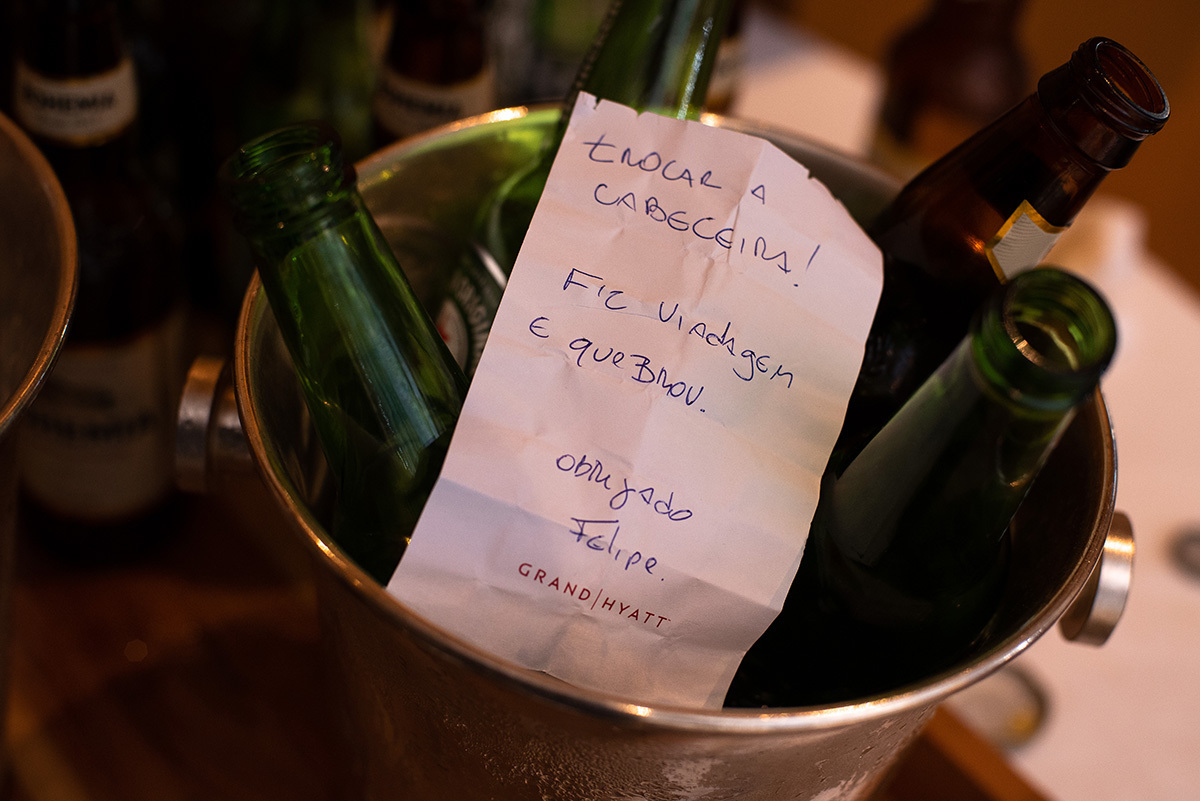 BOHEMIA
BOHEMIA
TROCAR A
CABECEIRA!
FIZ VIADAGEM
E QUEBROU.
OBRIGADO
FELIPE.
GRAND|HYATT